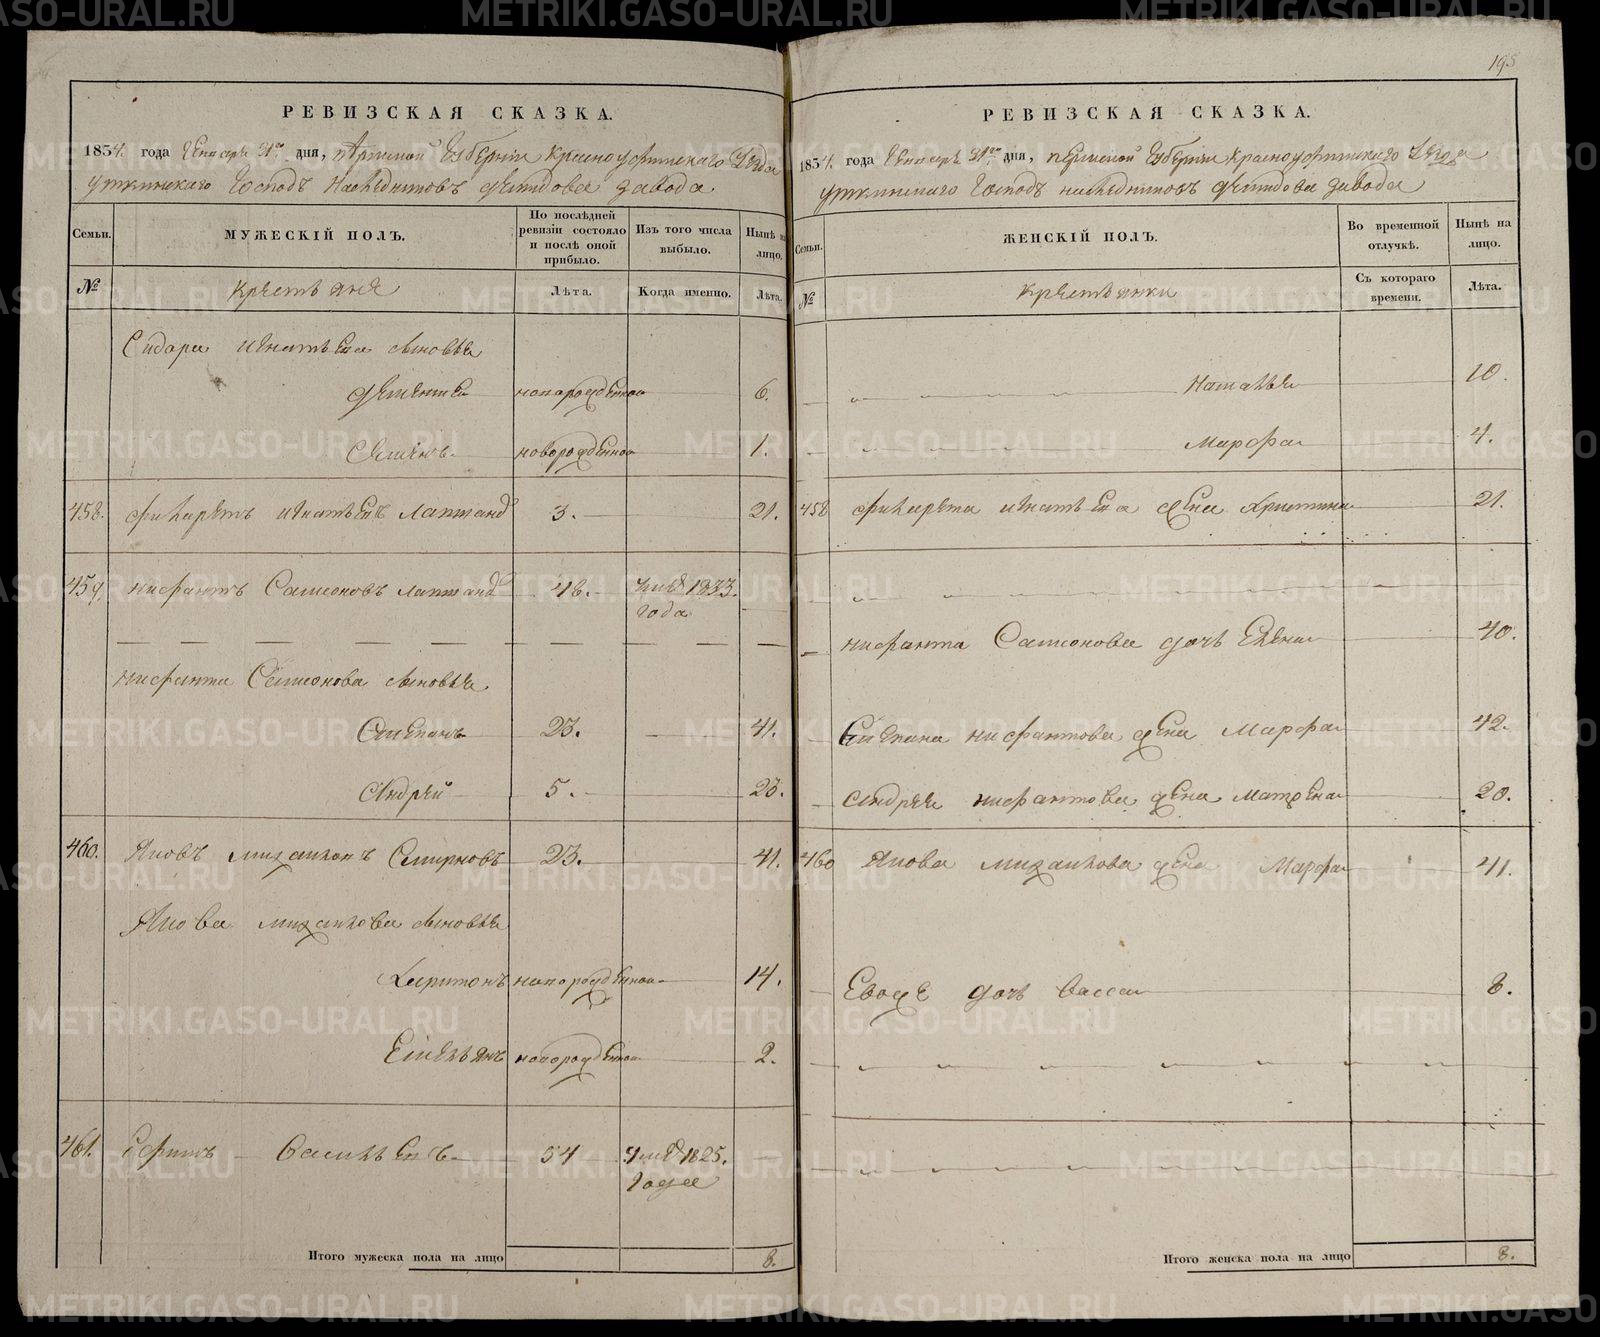 195
РЕВИЗСКАЯ СКАЗКА.
1834. года Генваря 31го дня, пермской Губерніи Красноуфимскаго Уезда
уткинскаго Господъ наследниковъ демидова завода.
Семьи.
МУЖЕСКІЙ ПОЛЪ.
По послѣдней ревизіи состояло и послѣ оной прибыло.
Изъ того числа выбыло.
Нынѣ на лицо.
№
крестьяня
Лѣта.
Когда именно.
Лѣта.
Сидора игнатьева сыновья
дементей новорожденной 6.
семенъ новорожденной 1.
458. филаретъ игнатьевъ 3. 21.
459. нифантъ Самсоновъ 48. 1833. года
нифанта Самсонова сыновья
Степанъ 23. 41.
Андрей 5. 23.
460. Яковъ михаиловъ Смирновъ 23. 41.
Якова михаилова сыновья
Харитонъ новорожденной 14.
Емельянъ новорожденной 2.
461. Ефимъ Васильевъ 54 1825. года
Итого мужеска пола на лицо 8.
РЕВИЗСКАЯ СКАЗКА.
1834. года Генваря 31го дня, пермской Губерніи Красноуфимскаго Уезда
уткинскаго Господъ наследниковъ демидова завода
Семьи.
ЖЕНСКІЙ ПОЛЪ.
Во временной отлучкѣ.
Нынѣ на лицо.
№
крестьянки
Съ котораго времени.
Лѣта.
Наталья 10.
Марфа 4.
458 филарета игнатьева жена Христина 21.
нифанта Самсонова дочь Елена 40.
Степана нифантова жена Марфа 42.
андрея нифантова жена матрена 20.
460 Якова михаилова жена Марфа 41.
Евоже дочь Васса 8.
Итого женска пола на лицо 8.
METRIKI.GASO-URAL.RU